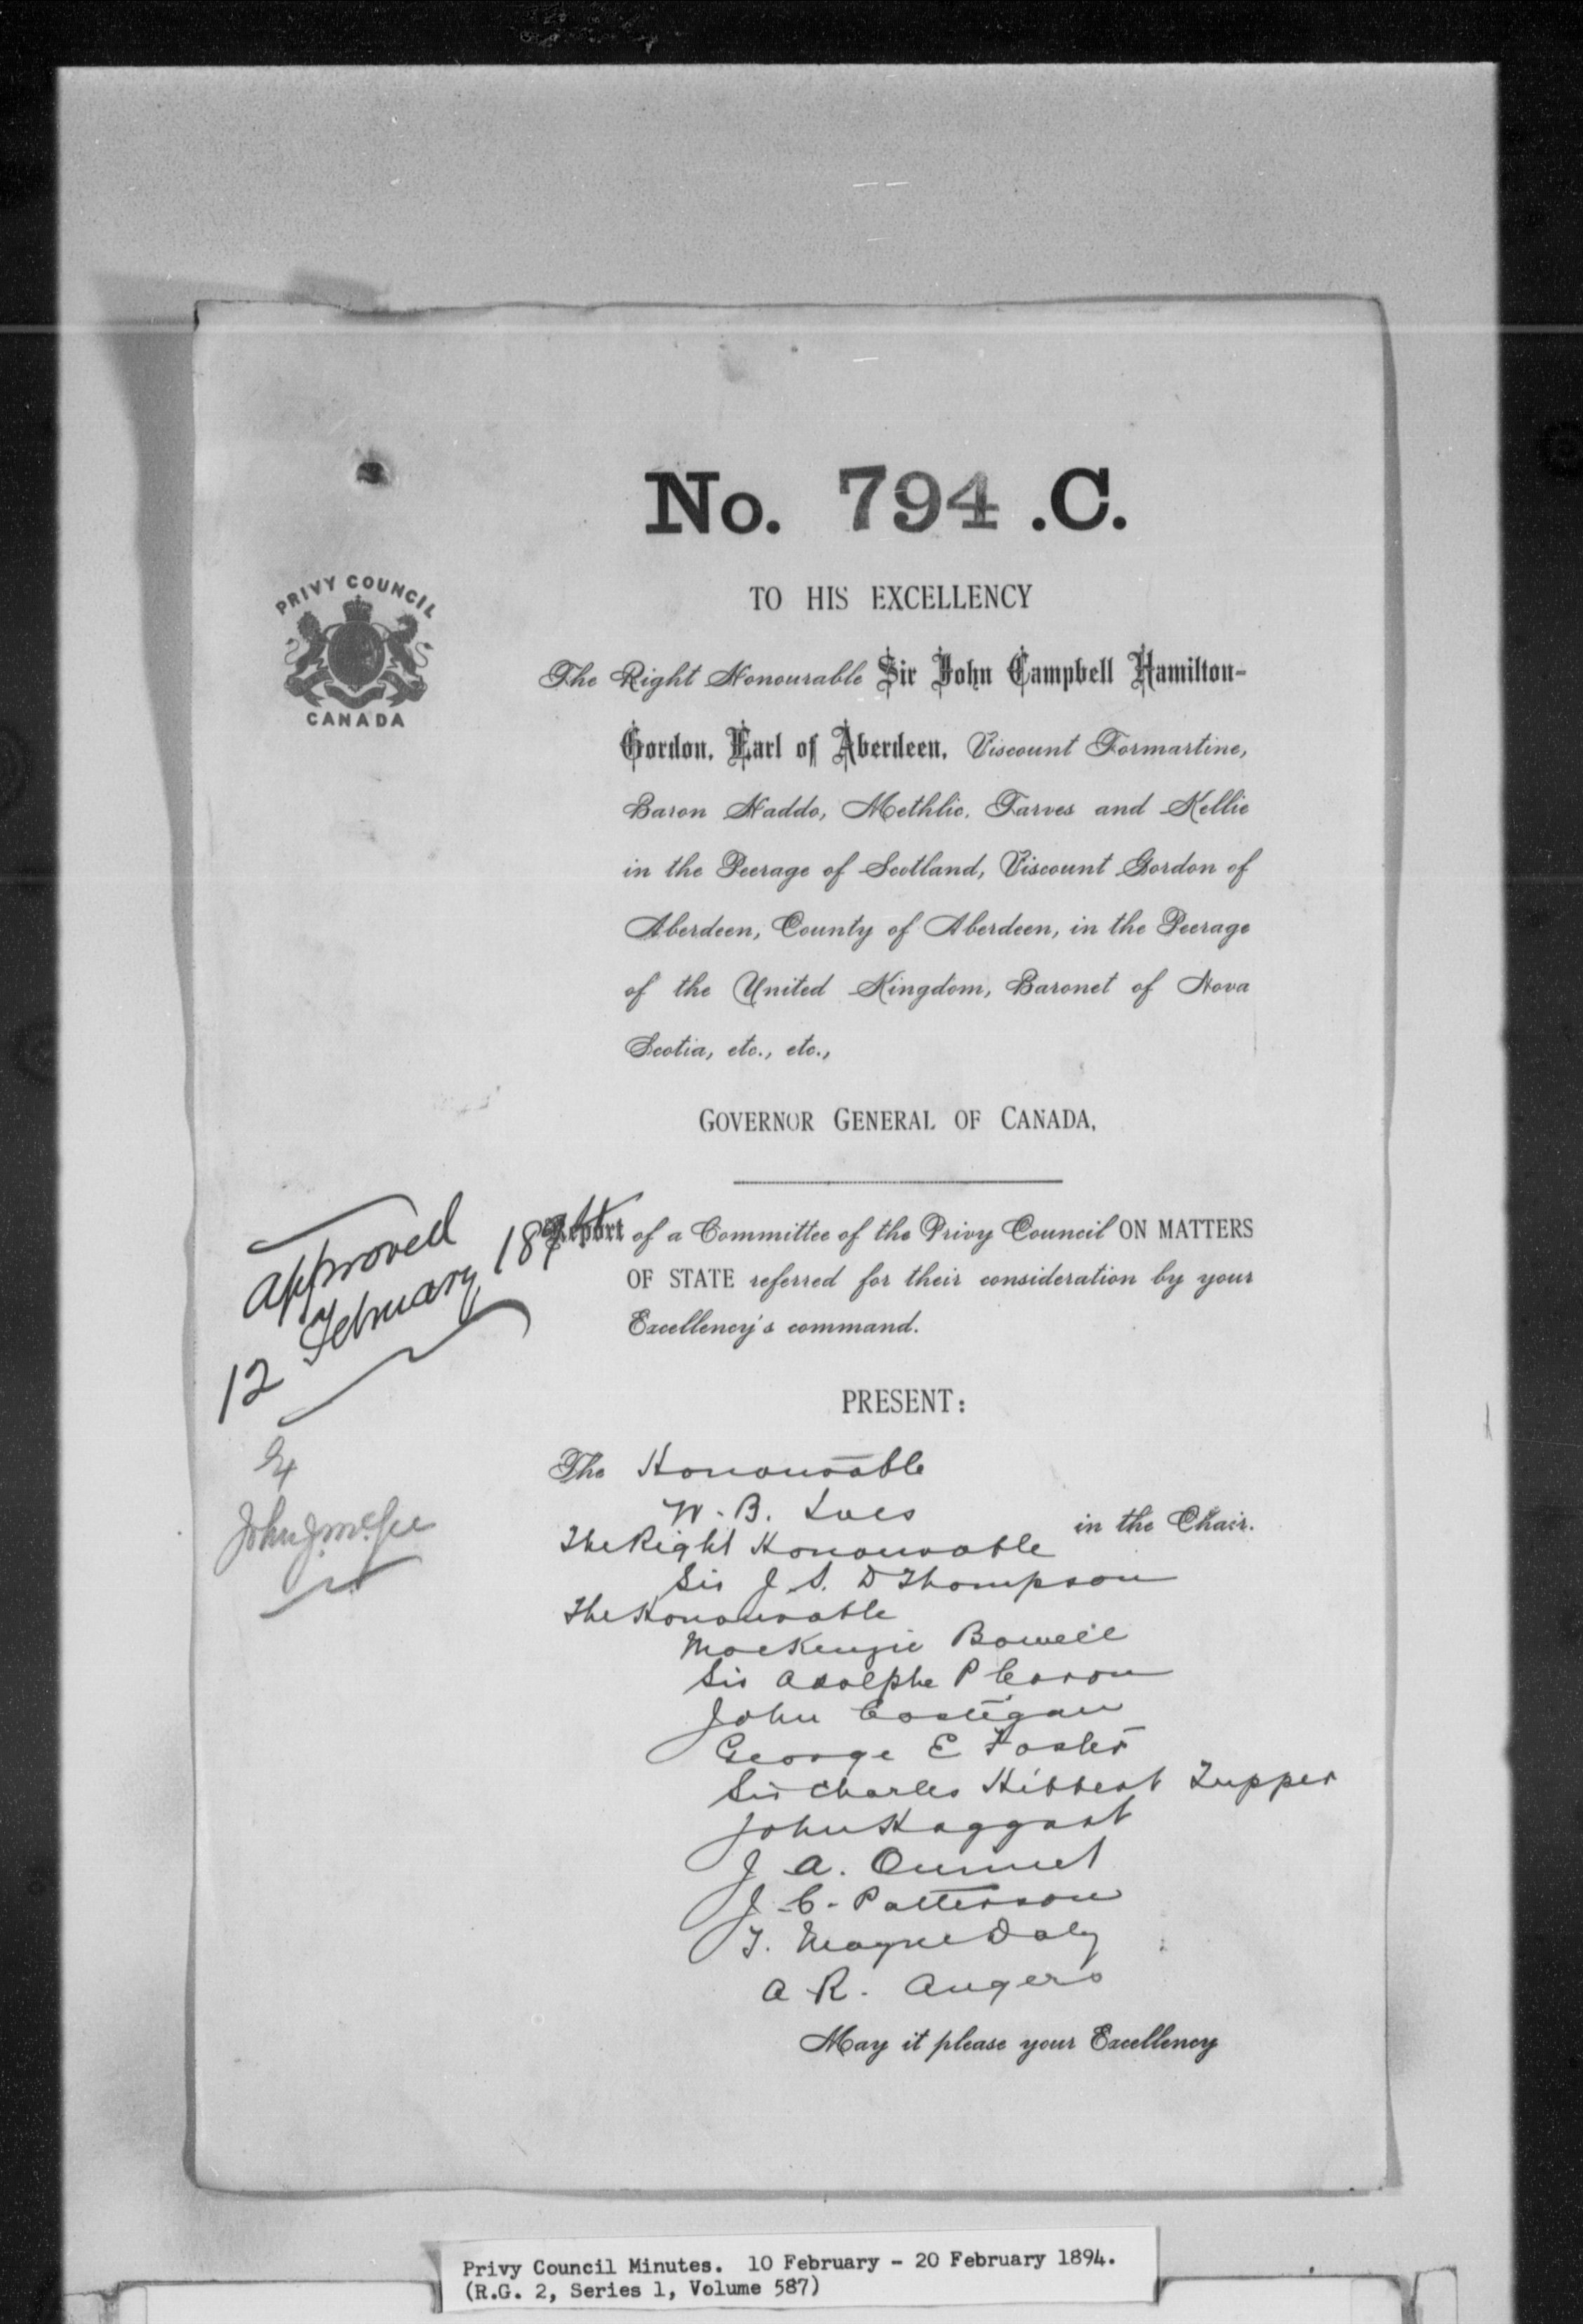 No. 794 .C.
PRIVY COUNCIL
CANADA
TO HIS EXCELLENCY
The Right Honourable Sir John Campbell Hamilton-
Gordon, Earl of Aberdeen, Viscount Formartine,
Baron Haddo, Methlic, Tarves and Kellie
in the Peerage of Scotland, Viscount Gordon of
Aberdeen, County of Aberdeen, in the Peerage
of the United Kingdom, Baronet of Nova
Scotia, etc., etc.,
GOVERNOR GENERAL OF CANADA,
Approved
12 February 1894
John J. McGee
Report of a Committee of the Privy Council ON MATTERS
OF STATE referred for their consideration by your
Excellency's command.
PRESENT:
The Honourable
W. B. Ives in the Chair.
The Right Honourable
Sir J. S. D Thompson
The Honourable
MacKenzie Bowell
Sir Adolphe P Caron
John Costigan
George E Foster
Sir Charles Hibbert Tupper
John Haggart
J. A. Ouimet
J. C. Patterson
T. Mayne Daly
A. R. Angers
May it please your Excellency
Privy Council Minutes. 10 February - 20 February 1894.
(R.G. 2, Series 1, Volume 587)